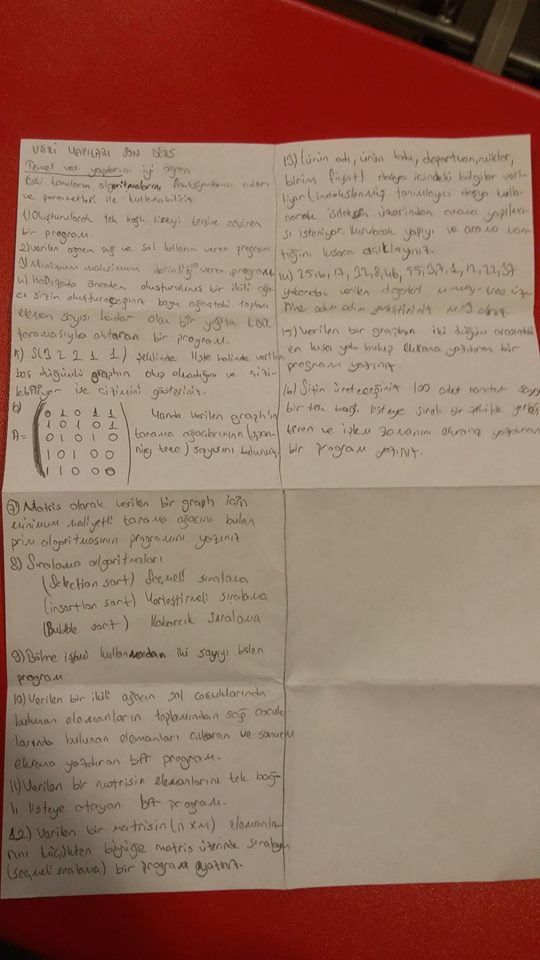 VERİ YAPILARI SON DERS
Temel veri yapılarını iyi öğren
Eski konuların algoritmalarını, fonksiyonlarını adları
ve parametreleri ile kullanabilirim.
1) Oluşturulacak tek bağlı listeyi tersine çeviren
bir program.
2) Verilen ağacın sağ ve sol kollarını veren program
3) Minimum maksimum derinliği veren program
4) Hafızada önceden oluşturulmuş bir ikili ağa-
cı sizin oluşturacağınız boyu ağaçtaki toplam
eleman sayısı kadar olan bir yığıta LDR
taramasıyla aktaran bir program.
5) S(3 2 2 1 1) şeklinde liste halinde verilen
boş düğümlü graphın olup olmadığını ve çizi-
lebiliyor ise çizimini gösteriniz.
6)
A=
0 1 0 1 1
1 0 1 0 1
0 1 0 1 0
1 0 1 0 0
1 1 0 0 0
Yanda verilen graph'ın
tarama ağaçlarının (span-
ning tree) sayısını bulunuz
7) Matris olarak verilen bir graph için
minimum maliyetli tarama ağacını bulan
prim algoritmasının programını yazınız
8) Sıralama algoritmaları
(Selection sort) Seçmeli sıralama
(insertion sort) Yerleştirmeli sıralama
(Bubble sort) Kabarcık sıralama
9) Bölme işlemi kullanmadan iki sayıyı bölen
program
10) Verilen bir ikili ağacın sol çocuklarında
bulunan elemanların toplamından sağ çocuk-
larında bulunan elemanları çıkaran ve sonucu
ekrana yazdıran bir program.
11) Verilen bir matrisin elemanlarını tek bağ-
lı listeye atayan bir program.
12) Verilen bir matrisin (n x m) elemanla-
rını küçükten büyüğe matris üzerinde sıralayan
(seçmeli sıralama) bir program yazınız.
13) (ürün adı, ürün kodu, departman, miktar,
birim fiyat) dosya içindeki bilgiler veri-
liyor. indekslenmiş tanımlayıcı dosya kulla-
narak üzerinden arama yapılma-
sı isteniyor. Kurulacak yapıyı ve arama man-
tığını kısaca açıklayınız.
14) 25, 16, 17, 32, 8, 46, 55, 37, 1, 12, 22, 37
yukarıdan verilen değerleri m-way-tree üze-
rine adım adım yerleştiriniz m=3 alınız.
15) Verilen bir graphın iki düğüm arasındaki
en kısa yolu bulup ekrana yazdıran bir
program yazınız
16) Sizin üreteceğiniz 100 adet random sayıyı
bir tek bağlı listeye sıralı bir şekilde yerleş-
tiren ve işlem zamanını ekrana yazdıran
bir program yazınız.